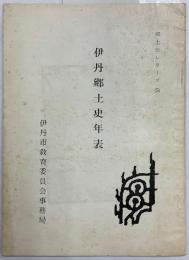 郷土史シリーズ
伊丹郷土史年表
伊丹市教育委員会事務局